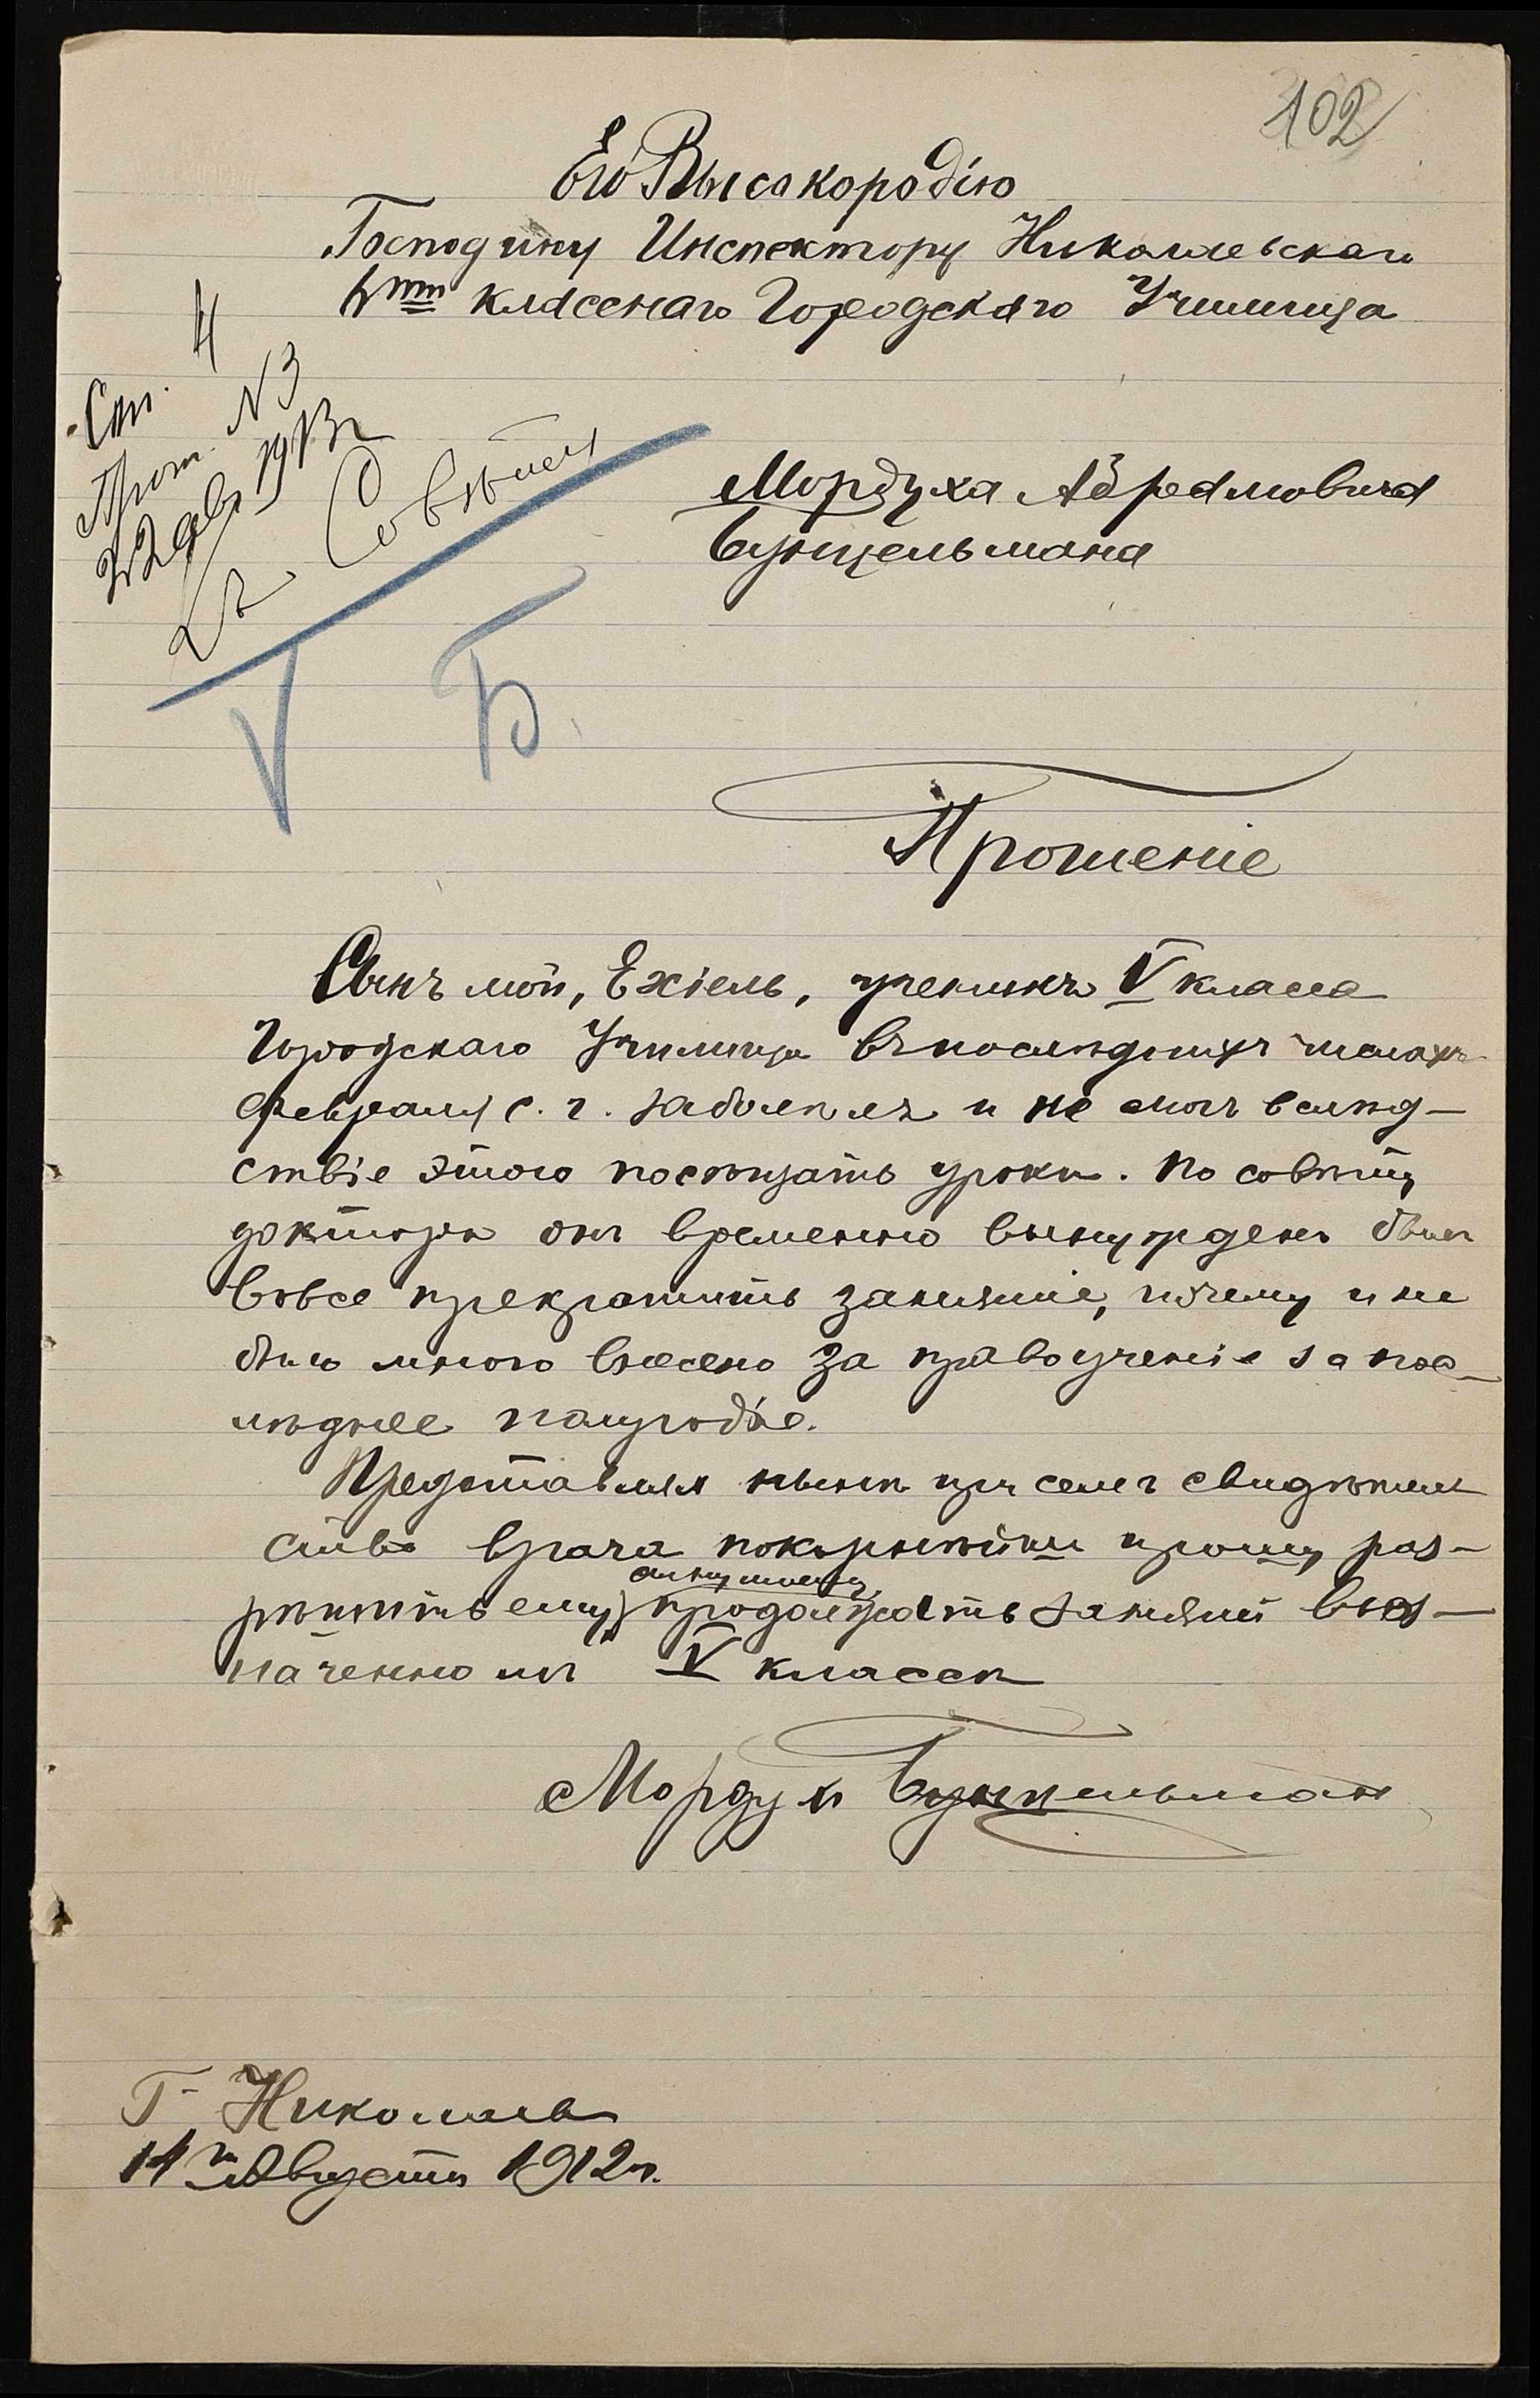 102
Его Высакородію
Господину Инспектору Николаевскаго
4хъ класснаго Городскаго Училища
Ст. 4
Прот. N 3
22 авг 1913 г
Къ Совѣту
V Б.
Мордуха Абрамовича
Бунцельмана
Прошеніе
Сынъ мой, Ехіель, ученикъ V класса
Городскаго Училища въ последнихъ числахъ
Февраля с. г. заболѣлъ и не могъ вслѣд-
ствіе этого посѣщать уроки. По совѣту
доктора онъ временно вынужденъ былъ
вовсе прекратить занятіе, почему и не
было мною внесено за правоученіе за пос-
лѣднее полугодіе.
Представляя нынѣ при семъ свидѣтель
ство врача покорнѣйше прошу раз-
рѣшить ему продолжать занятій въ оз-
наченномъ V классѣ
Мордух Бунцельман
Г. Николаевъ
14 го Августа 1912 г.